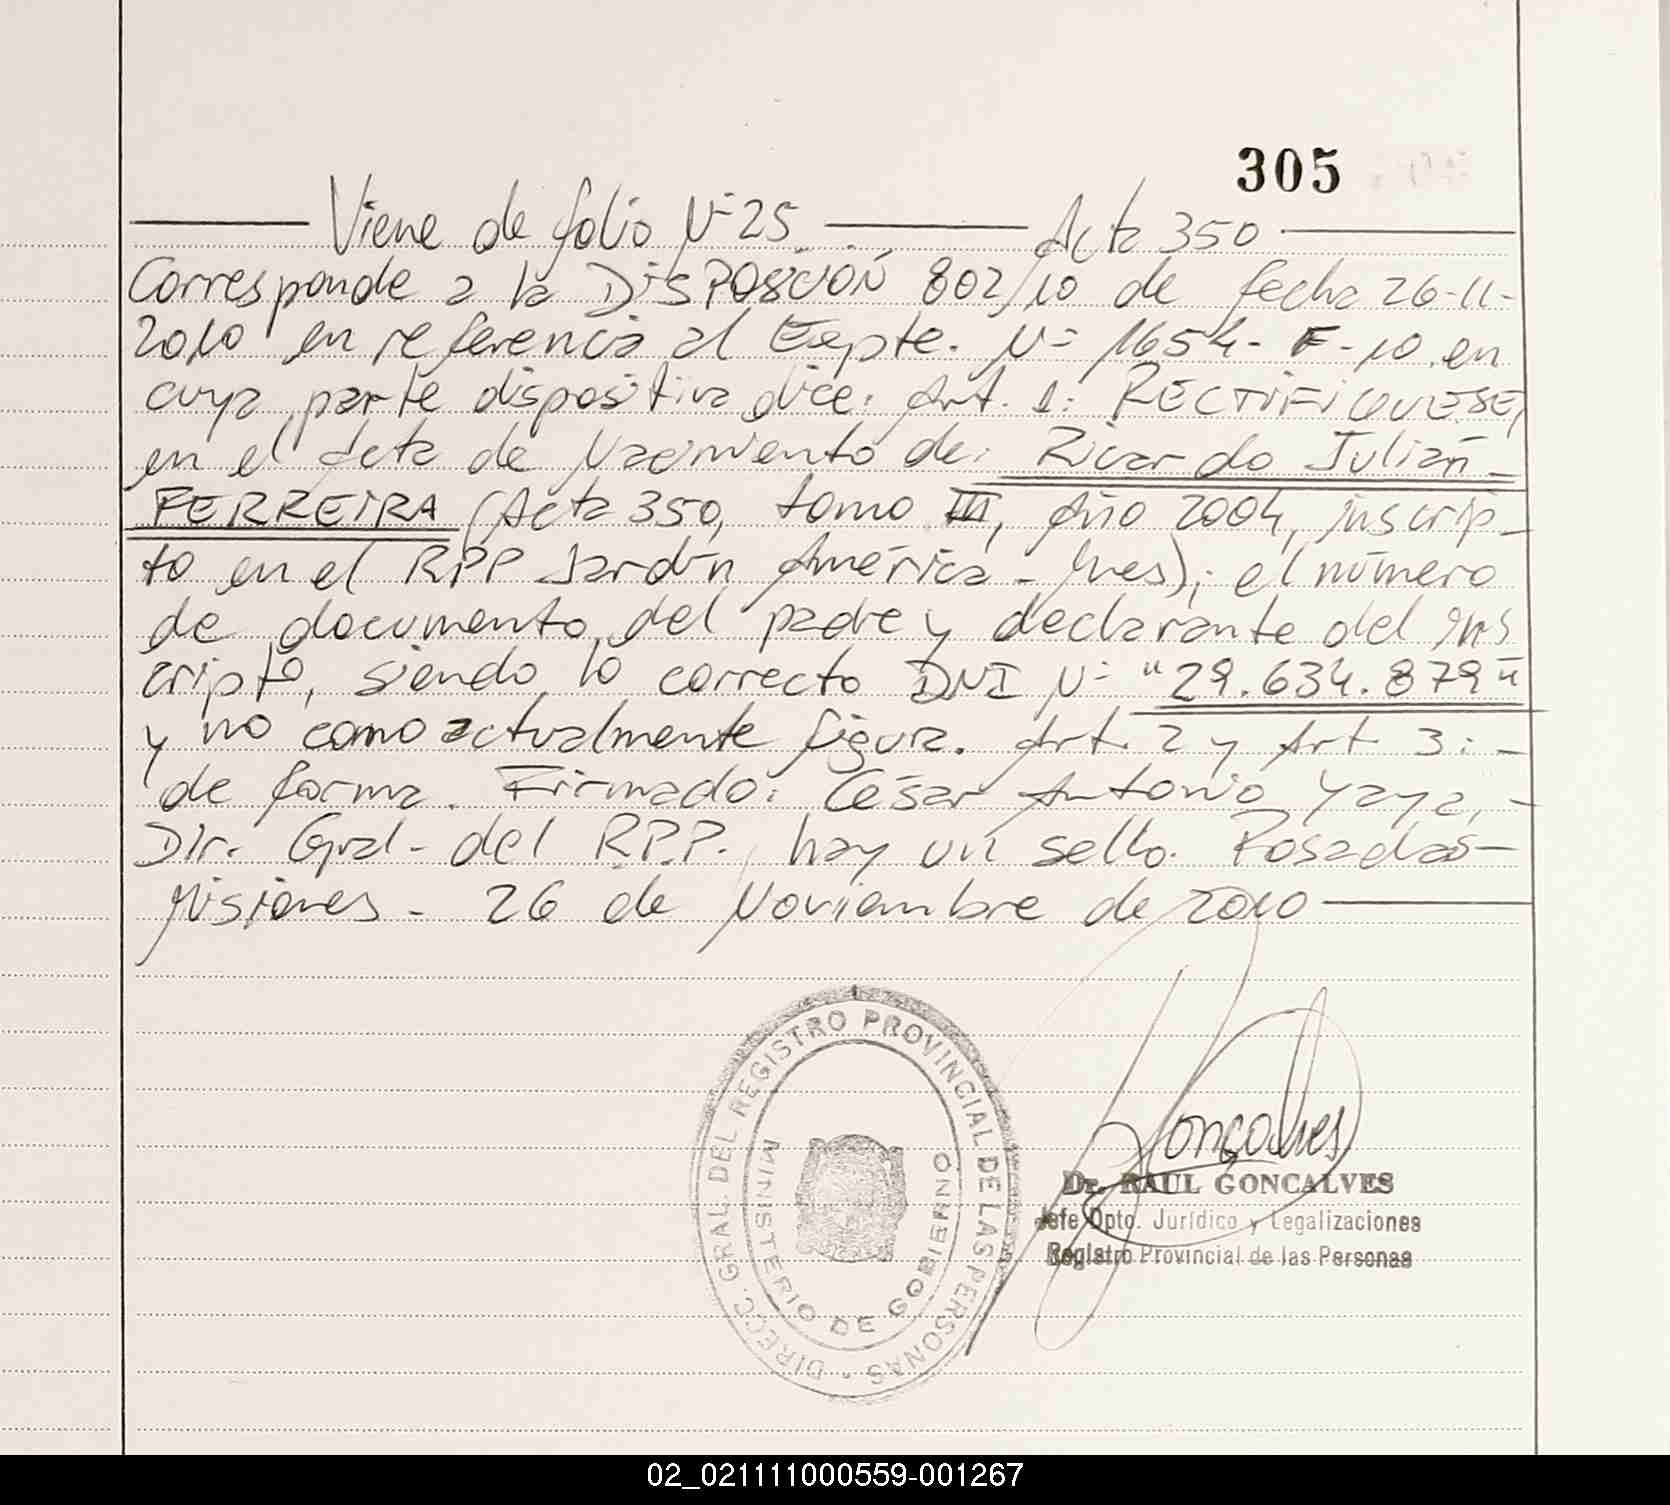 305
Viene de folio Nº 25 Acta 350
Corresponde a la DISPOSICIÓN 802/10 de fecha 26-11-
2010 en referencia al Expte. Nº 1654-F-10 en
cuya parte dispositiva dice. Art. 1: RECTIFIQUESE,
en el Acta de Nacimiento de: Ricardo Julián
FERREIRA (Acta 350, tomo III, Año 2004, inscrip-
to en el RPP Jardín América - Mnes); el número
de documento, del padre y declarante del ins
cripto, siendo lo correcto DNI Nº "29.634.879"
y no como actualmente figura. Art. 2 y Art 3: -
de forma. Firmado: César Antonio Yaya, -
Dir. Gral- del R.P.P. hay un sello. Posadas-
Misiones - 26 de Noviembre de 2010
DIRECC. GRAL. DEL REGISTRO PROVINCIAL DE LAS PERSONAS
MINISTERIO DE GOBIERNO
Goncalves
Dr. RAUL GONCALVES
Jefe Dpto. Jurídico y Legalizaciones
Registro Provincial de las Personas
02_021111000559-001267